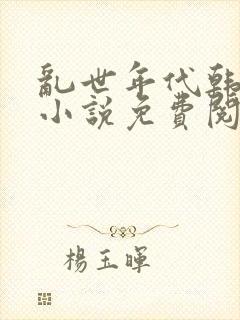 亂世年代韓
小說免費閱
楊玉暉